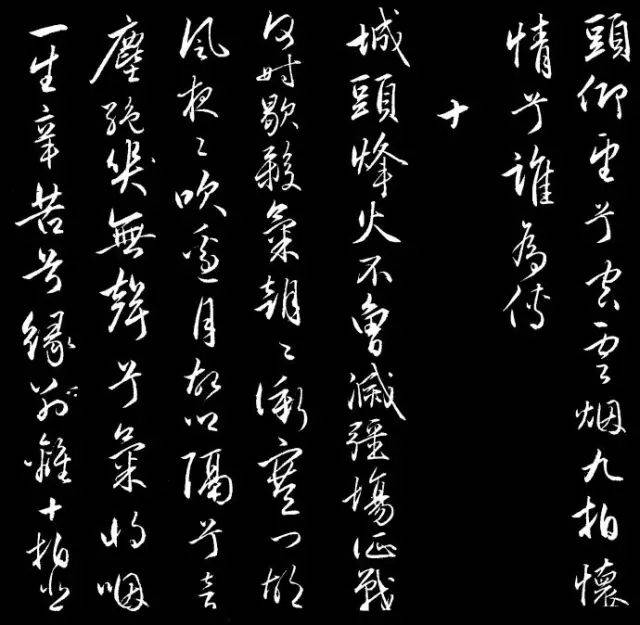 頭仰望兮空雲烟九拍懷
情兮誰為傳
十
城頭烽火不曾滅疆場征戰
何時歇殺氣朝〻衝塞門胡
風夜〻吹邊月故鄉隔兮音
塵絕哭無聲兮氣將咽
一生辛苦兮緣別離十拍悲